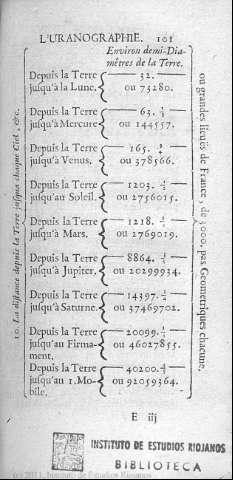 L'URANOGRAPHIE. 101
Environ demi-Dia-
mêtres de la Terre.
10. La distance depuis la Terre jusques chaque Ciel, &c.
Depuis la Terre — 32. —
jusqu'à la Lune. ou 73280.
Depuis la Terre — 63.
jusqu'à Mercure ou 144557.
Depuis la Terre — 165.
jusqu'à Venus, ou 378566.
Depuis la Terre — 1203.
jusqu'au Soleil. ou 2756015.
Depuis la Terre — 1218.
jusqu'à Mars. ou 2769019.
Depuis la Terre — 8864.
jusqu'à Jupiter, ou 20299934.
Depuis la Terre — 14397.
jusqu'à Saturne. ou 37469702.
Depuis la Terre — 20099.
jusqu'au Firma- ou 46027855.
ment.
Depuis la Terre — 40200.
jusqu'au 1. Mo- ou 92059364.
bile.
ou grandes lieuës de France, de 3000. pas Geometriques chacune.
E iij
INSTITUTO DE ESTUDIOS RIOJANOS
BIBLIOTECA
(c) 2011. Instituto de Estudios Riojanos